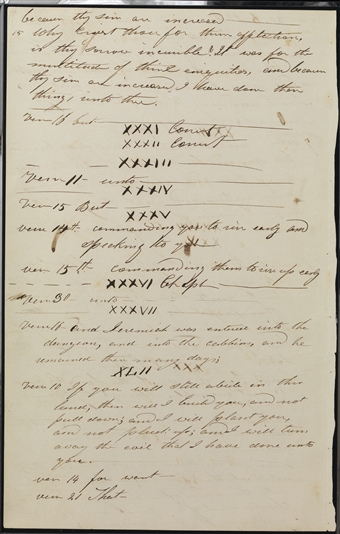 because thy sins are increased
15 Why criest thou for thine affliction,
is thy sorrow incurable? It was for the
multitude of thine iniquities, and because
thy sins are increased I have done these
things unto thee.
vers 18 but
XXXI Correct
XXXII Correct
XXXIII
Vers 11 unto
XXXIV
vers 15 But
XXXV
vers 14th commanding you to rise early and
speaking to you
ver 15th commanding them to rise up early
XXXVI Chapt
vers 30 unto
XXXVII
vers 16 and Jeremiah was entered into the
dungeon, and into the cabbins, and he
remained there many days;
XLII
vers 10 If you will still abide in this
land, then will I build you, and not
pull down; and I will plant you,
and not pluck up; and I will turn
away the evil that I have done unto
you.
vers 14 for want
vers 21 That